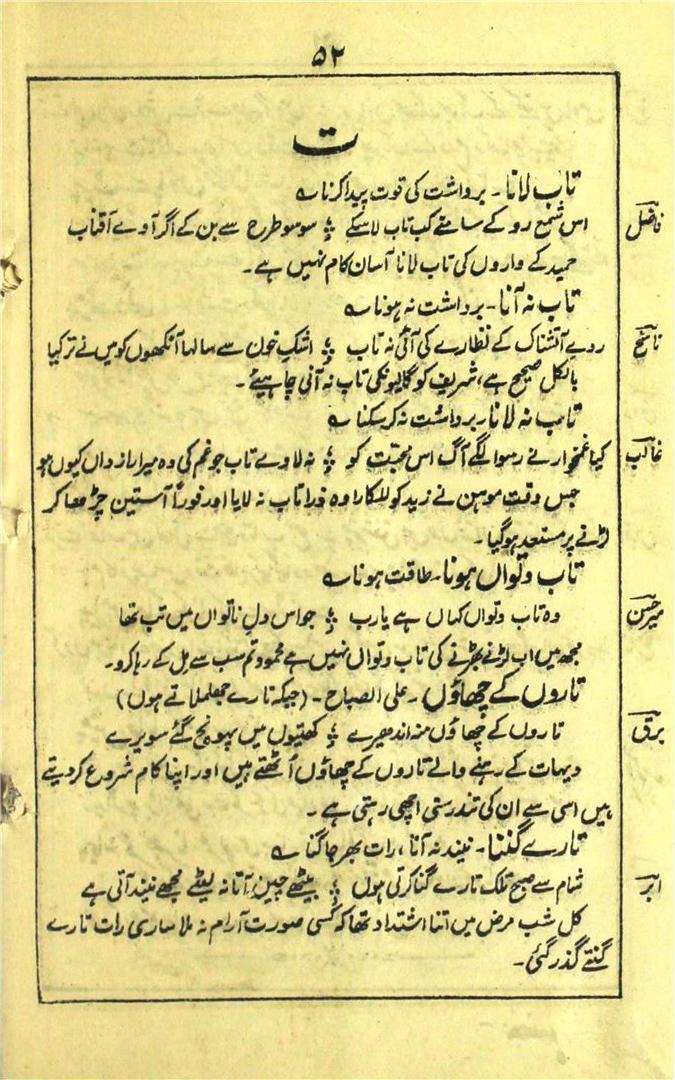 ۵۲
ت
تاب لانا۔ برداشت کی قوت پیدا کرنا ؎
فاضل اس شمع رو کے سامنے کب تاب لا سکے ؛ سو سو طرح سے بن کے اگر آوے آفتاب
حمید کے واروں کی تاب لانا آسان کام نہیں ہے۔
تاب نہ آنا۔ برداشت نہ ہونا ؎
ناسخ روے آتشناک کے نظارے کی آئی نہ تاب ؛ اشکِ خون سے سالہا آنکھوں کو میں نے تر کیا
بالکل صحیح ہے، شریف کو گالیونکی تاب نہ آنی چاہیئے۔
تاب نہ لانا۔ برداشت نہ کرسکنا ؎
غالب کیا غمخوار نے رسوا لگے آگ اس محبت کو ؛ نہ لاوے تاب جو غم کی وہ میرا رازداں کیوں ہو
جس وقت موہن نے زید کو للکارا وہ ذرا تاب نہ لایا اور فوراً آستین چڑھا کر
لڑنے پر مستعد ہوگیا۔
تاب و تواں ہونا۔ طاقت ہونا ؎
میر حسن وہ تاب و تواں کہاں ہے یارب ؛ جو اس دلِ ناتواں میں تب تھا
مجھ میں اب لڑنے بھڑنے کی تاب و تواں نہیں ہے محمود تم سب سے مل کے رہا کرو۔
تاروں کے چھاؤں۔ علی الصباح۔ (جبکہ تارے جھلملاتے ہوں)
برق تاروں کے چھاؤں منہ اندھیرے ؛ کھیتوں میں پہونچ گئے سویرے
دیہات کے رہنے والے تاروں کے چھاؤں اُٹھتے ہیں اور اپنا کام شروع کردیتے
ہیں اسی سے ان کی تندرستی اچھی رہتی ہے۔
تارے گننا۔ نیند نہ آنا، رات بھر جاگنا ؎
ابر شام سے صبح تلک تارے گنا کرتی ہوں ؛ بیٹھے چین آتا نہ لیٹے مجھے نیند آتی ہے
کل شب مرض میں اتنا اشتداد تھا کہ کسی صورت آرام نہ ملا ساری رات تارے
گنتے گذر گئی۔